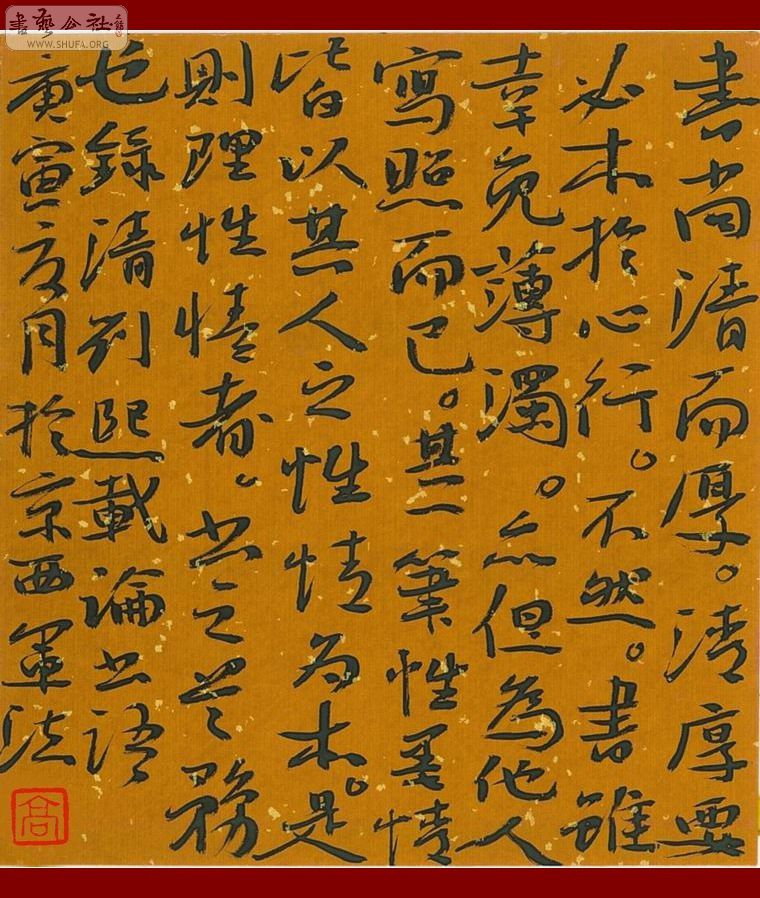 書艺公社
WWW.SHUFA.ORG
書尚清而厚。清厚要
必本於心行。不然。書雖
幸免薄濁。亦但為他人
寫照而已。其一筆性墨情
皆以其人之性情为本。是
则理性情者。书之首務
也録清刘熙載論书语
庚寅六月於京西軍法
高